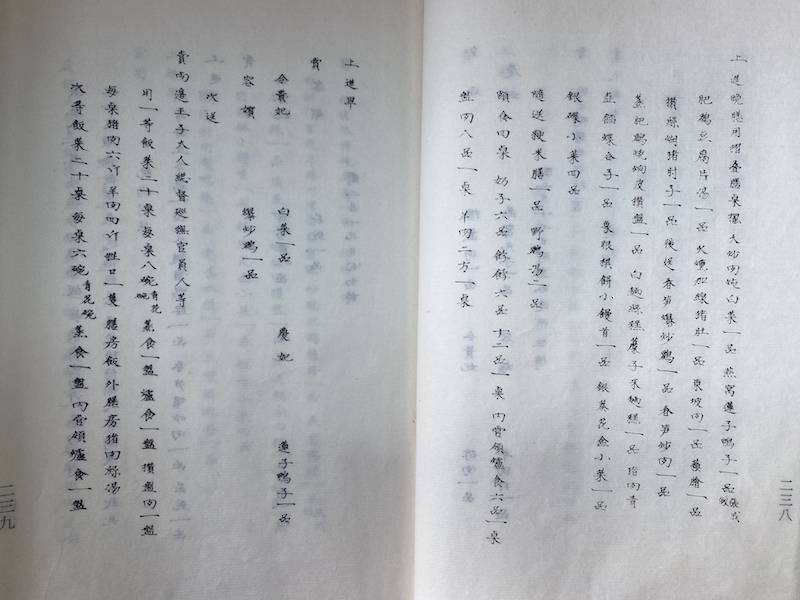 上進晚膳用摺叠膳桌擺大炒肉炖白菜一品燕窩蓮子鴨子一品 張成做
肥鷄豆腐片湯一品 火燻加線猪肚一品 東坡肉一品 蒸膾一品
攢絲焖猪肘子一品 後送春笋爆炒鷄一品 春笋炒肉一品
蒸肥鷄燒狍皮攢盤一品 白麵絲糕縻子米麵糕一品 猪肉青
韮餡蝶合子一品 象眼棋餅小饅首一品 銀葵花盒小菜一品
銀碟小菜四品
隨送粳米膳一品 野鷄湯一品
額食四桌 奶子六品 餑餑六品 十二品一桌 内管領爐食六品一桌
盤肉八品一桌 羊肉二方一桌
二三八
上進畢
賞
令貴妃 白菜一品 慶妃 蓮子鴨子一品
容嬪 爆炒鷄一品
次送
賣向邊王子大人總督廵撫官員人等
用一等飯菜二十桌 每桌八碗 青花碗 蒸食一盤 爐食一盤 攢盤肉一盤
每桌猪肉六斤羊肉四斤 膳房飯 外膳房猪肉絲湯
次等飯菜二十桌 每桌六碗 青花碗 蒸食一盤 内管領爐食一盤
二三九